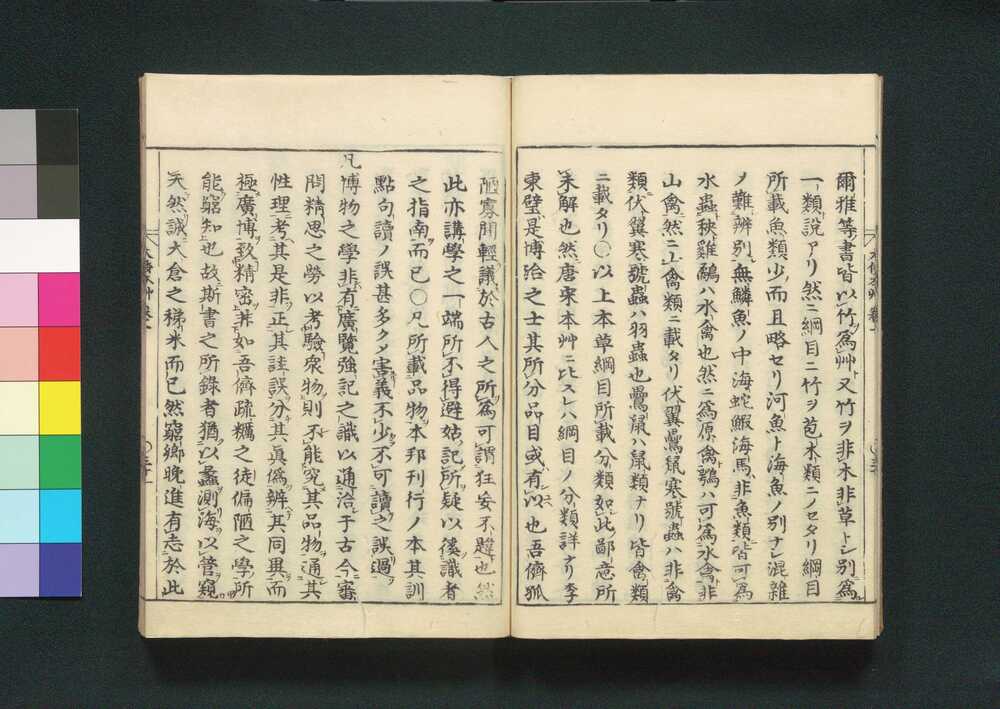 爾雅等書皆以竹爲艸又竹ヲ非木非草トシ別爲
一類説アリ然ニ綱目ニ竹ヲ苞木類ニノセタリ綱目
所載魚類少而且略セリ河魚ト海魚ノ別ナシ混雜
ノ難辨別無鱗魚ノ中海蛇鰕海馬非魚類皆可爲
水蟲秧雞鷸ハ水禽也然ニ爲原禽鶚ハ可爲水禽非
山禽然ニ山禽類ニ載タリ伏翼鸓鼠寒號蟲ハ非禽
類伏翼寒號蟲ハ羽蟲也鸓鼠ハ鼠類ナリ皆禽類
ニ載タリ○以上本草綱目所載分類如此鄙意所
未解也然唐宋本艸ニ比スレハ綱目ノ分類詳ナリ李
東壁是博洽之士其所分品目或有以也吾儕狐
陋寡聞輕議於古人之所爲可謂狂妄不韙也然
此亦講學之一端所不得避姑記所疑以俟識者
之指南而已○凡所載品物本邦刊行ノ本其訓
點句讀ノ誤甚多クメ害義不少不可讀之誤過
凡博物之學非有廣覽強記之識以通洽于古今審
問精思之勞以考驗衆物則不能究其品物通其
性理考其是非正其詿誤分其眞僞辨其同異而
極廣博致精密并如吾儕疏糲之徒偏陋之學所
能窮知也故斯書之所錄者猶以蠡測海以管窺
天然誠大倉之稊米而已然窮鄉晚進有志於此